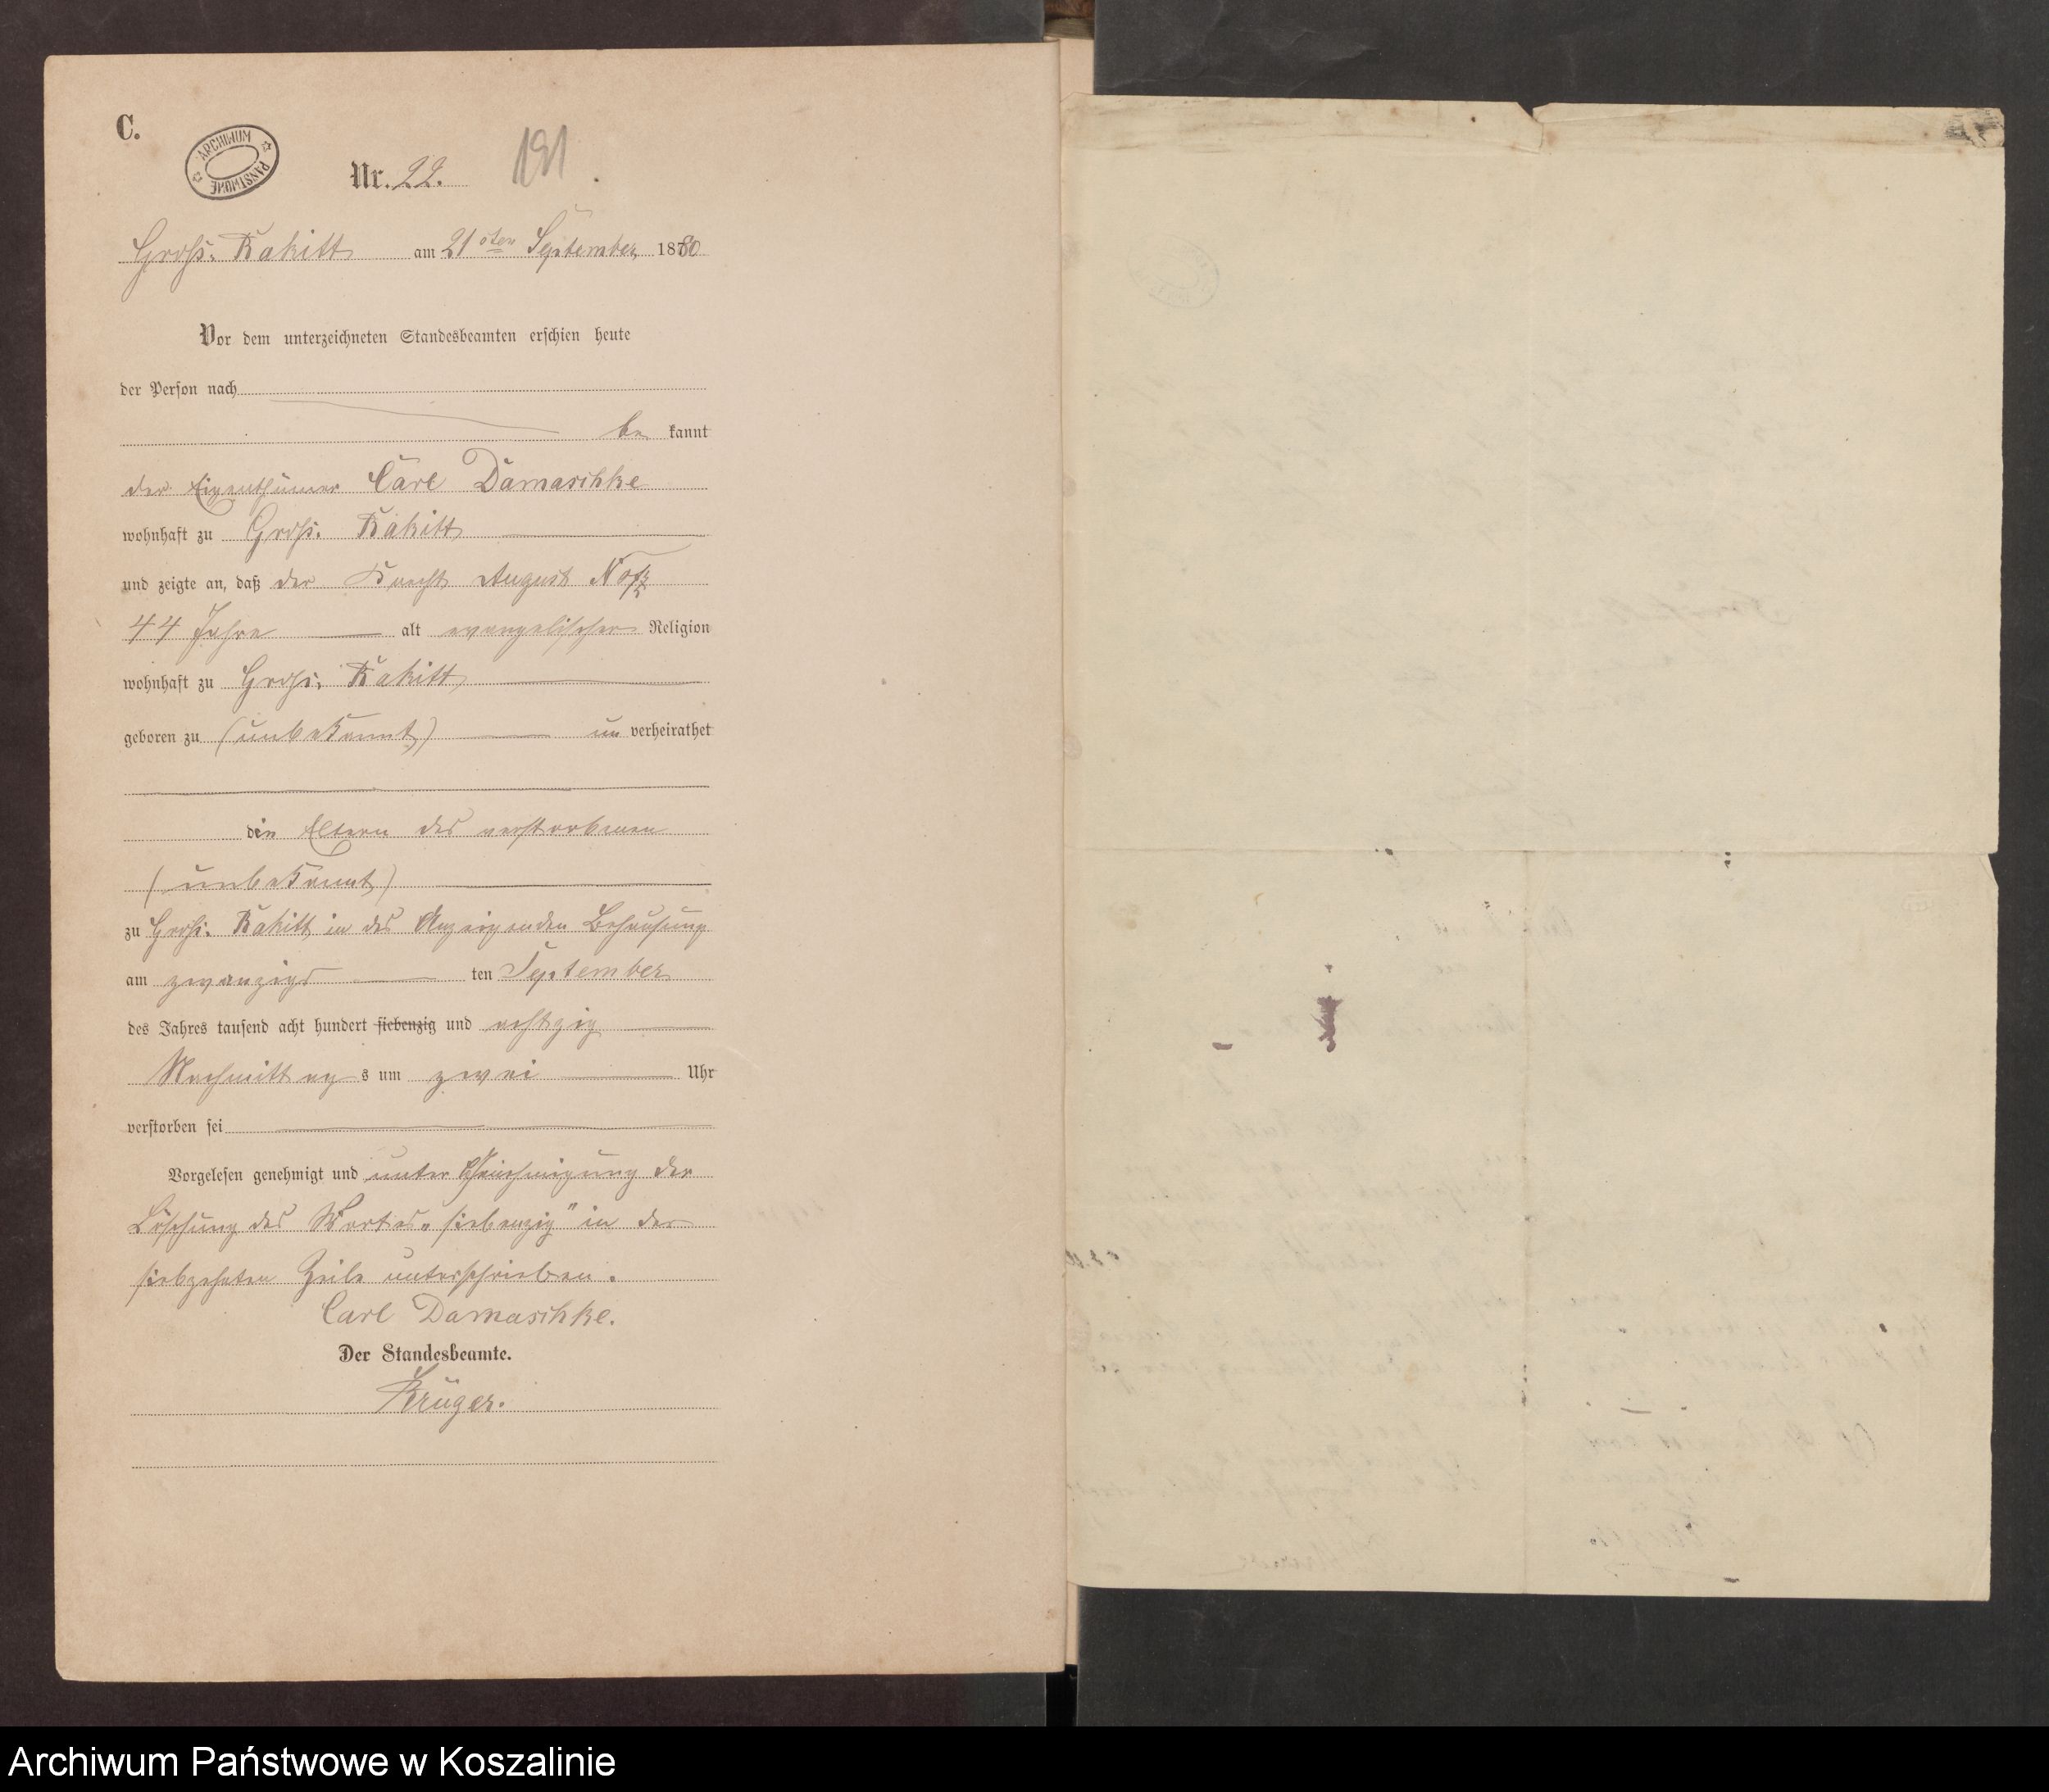 C.
ARCHIWUM PAŃSTWOWE
Nr. 22.
191
Groß. Rakitt am 21sten September 1880
Vor dem unterzeichneten Standesbeamten erschien heute
der Person nach
be kannt
der Eigenthümer Carl Damaschke
wohnhaft zu Groß. Rakitt
und zeigte an, daß der Knecht August
44 Jahre alt evangelischer Religion
wohnhaft zu Groß. Rakitt
geboren zu (unbekannt) un verheirathet
die Eltern des verstorbenen
(unbekannt)
zu Groß. Rakitt in des Anzeigenden Behausung
am zwanzigs ten September
des Jahres tausend acht hundert siebenzig und achtzig
Nachmittag s um zwei Uhr
verstorben sei
Vorgelesen genehmigt und unter Genehmigung der
Löschung des Wortes „siebenzig" in der
siebzehnten Zeile unterschrieben.
Carl Damaschke.
Der Standesbeamte.
Krüger.
Archiwum Państwowe w Koszalinie